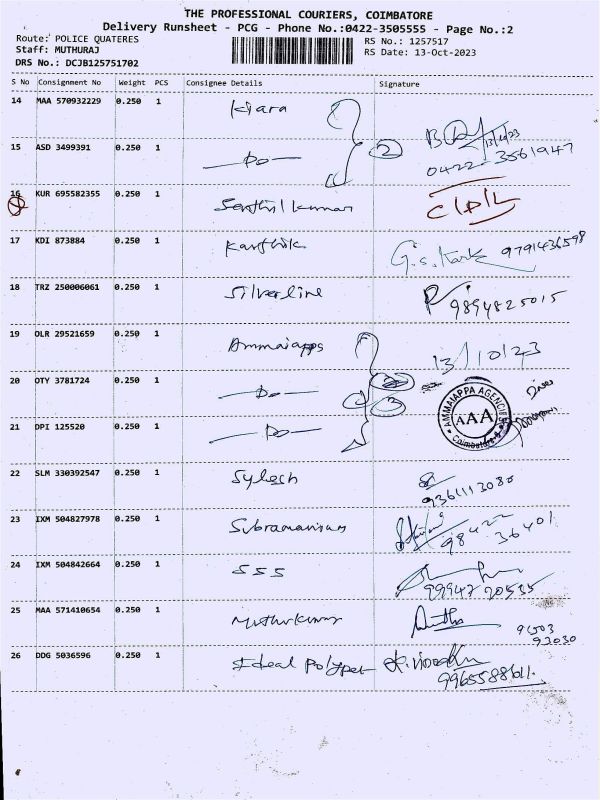 THE PROFESSIONAL COURIERS, COIMBATORE
Delivery Runsheet - PCG - Phone No.:0422-3505555 - Page No.:2
Route: POLICE QUATERES
RS No.: 1257517
Staff: MUTHURAJ
RS Date: 13-Oct-2023
DRS No.: DCJB125751702
S No Consignment No Weight PCS Consignee Details Signature
14 MAA 570932229 0.250 1 Kiara
13/10/23
15 ASD 3499391 0.250 1 -Do- 2
0422-3561947
16 KUR 695582355 0.250 1 Senthil kumar
17 KDI 873884 0.250 1 Karthik G.S. Kark 9791436598
18 TRZ 250006061 0.250 1 Silverline 9894825015
19 OLR 29521659 0.250 1 Ammaiapps 13/10/23
20 OTY 3781724 0.250 1 -Do- 3
AMMAIAPPA AGENCIES
AAA
Coimbatore
21 DPI 125520 0.250 1 -Do-
22 SLM 330392547 0.250 1 Sylesh
9361113080
23 IXM 504827978 0.250 1 Subramanian 98422 36401
24 IXM 504842664 0.250 1 SSS
99947 20535
25 MAA 571410654 0.250 1 Muthukumar
26 DDG 5036596 0.250 1 Ideal Polypet